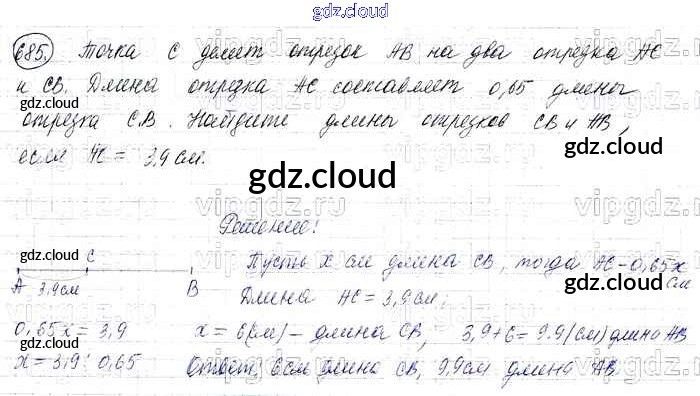 gdz.cloud
685. Точка С делит отрезок АВ на два отрезка АС
и СВ. Длина отрезка АС составляет 0,65 длины
отрезка СВ. Найдите длины отрезков СВ и АВ,
если АС = 3,9 см.
gdz.cloud
gdz.cloud
gdz.cloud
Решение:
gdz.cloud
С
Пусть х см длина СВ, тогда АС - 0,65х см
А 3,9см В Длина АС = 3,9см;
gdz.cloud
0,65х = 3,9 х = 6(см) - длина СВ, 3,9+6= 9.9(см) длина АВ
х = 3,9 : 0,65 Ответ: 6см длина СВ, 9,9см длина АВ.
gdz.cloud
gdz.cloud
vipgdz.ru